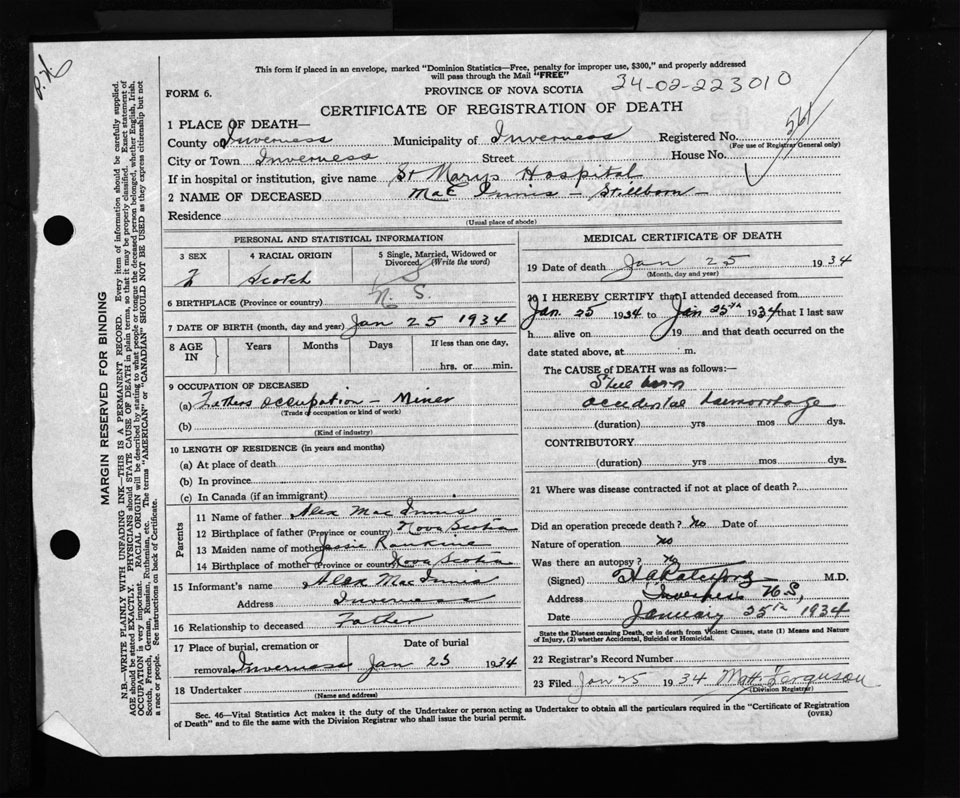 This form if placed in an envelope, marked "Dominion Statistics—Free, penalty for improper use, $300," and properly addressed
will pass through the Mail "FREE"
34-02-223010
FORM 6.
PROVINCE OF NOVA SCOTIA
CERTIFICATE OF REGISTRATION OF DEATH
1 PLACE OF DEATH—
County of Inverness Municipality of Inverness Registered No.
(For use of Registrar General only)
City or Town Inverness Street House No.
If in hospital or institution, give name St Marys Hospital
2 NAME OF DECEASED Mac Innis — Stillborn —
Residence
(Usual place of abode)
PERSONAL AND STATISTICAL INFORMATION
3 SEX 4 RACIAL ORIGIN 5 Single, Married, Widowed or
Divorced (Write the word)
Scotch S
6 BIRTHPLACE (Province or country) N. S.
7 DATE OF BIRTH (month, day and year) Jan 25 1934
8 AGE IN Years Months Days If less than one day,
hrs. or min.
9 OCCUPATION OF DECEASED
(a) Fathers occupation — Miner
(Trade of occupation or kind of work)
(b)
(Kind of industry)
10 LENGTH OF RESIDENCE (in years and months)
(a) At place of death
(b) In province
(c) In Canada (if an immigrant)
Parents
11 Name of father Alex Mac Innis
12 Birthplace of father (Province or country) Nova Scotia
13 Maiden name of mother Jessie Rankine
14 Birthplace of mother (Province or country) Nova Scotia
15 Informant's name Alex Mac Innis
Address Inverness
16 Relationship to deceased Father
17 Place of burial, cremation or Date of burial
removal Inverness Jan 25 1934
18 Undertaker
(Name and address)
MEDICAL CERTIFICATE OF DEATH
19 Date of death Jan 25 1934
(Month, day and year)
20 I HEREBY CERTIFY that I attended deceased from
Jan. 25 1934 to Jan 25th 1934 that I last saw
h alive on 19 and that death occurred on the
date stated above, at m.
The CAUSE of DEATH was as follows:—
Still born
accidental haemorrhage
(duration) yrs mos dys.
CONTRIBUTORY
(duration) yrs mos dys.
21 Where was disease contracted if not at place of death?
Did an operation precede death? no Date of
Nature of operation no
Was there an autopsy? no
(Signed) M.D.
Address Inverness N S,
Date January 25th 1934
State the Disease causing Death, or in death from Violent Causes, state (1) Means and Nature
of Injury, (2) whether Accidental, Suicidal or Homicidal.
22 Registrar's Record Number
23 Filed Jan 25 1934 Ferguson
(Division Registrar)
Sec. 46—Vital Statistics Act makes it the duty of the Undertaker or person acting as Undertaker to obtain all the particulars required in the "Certificate of Registration
of Death" and to file the same with the Division Registrar who shall issue the burial permit.
(OVER)
MARGIN RESERVED FOR BINDING
N.B.—WRITE PLAINLY WITH UNFADING INK—THIS IS A PERMANENT RECORD. Every item of information should be carefully supplied.
AGE should be stated EXACTLY. PHYSICIANS should STATE CAUSE OF DEATH in plain terms, so that it may be properly classified. Exact statement of
OCCUPATION is very important. RACIAL ORIGIN will be described by stating to what people or tongue the deceased person belonged, whether English, Irish,
Scotch, French, German, Russian, Ruthenian, etc. The terms "AMERICAN" or "CANADIAN" SHOULD NOT BE USED as they express citizenship but not
a race or people. See instructions on back of Certificate.